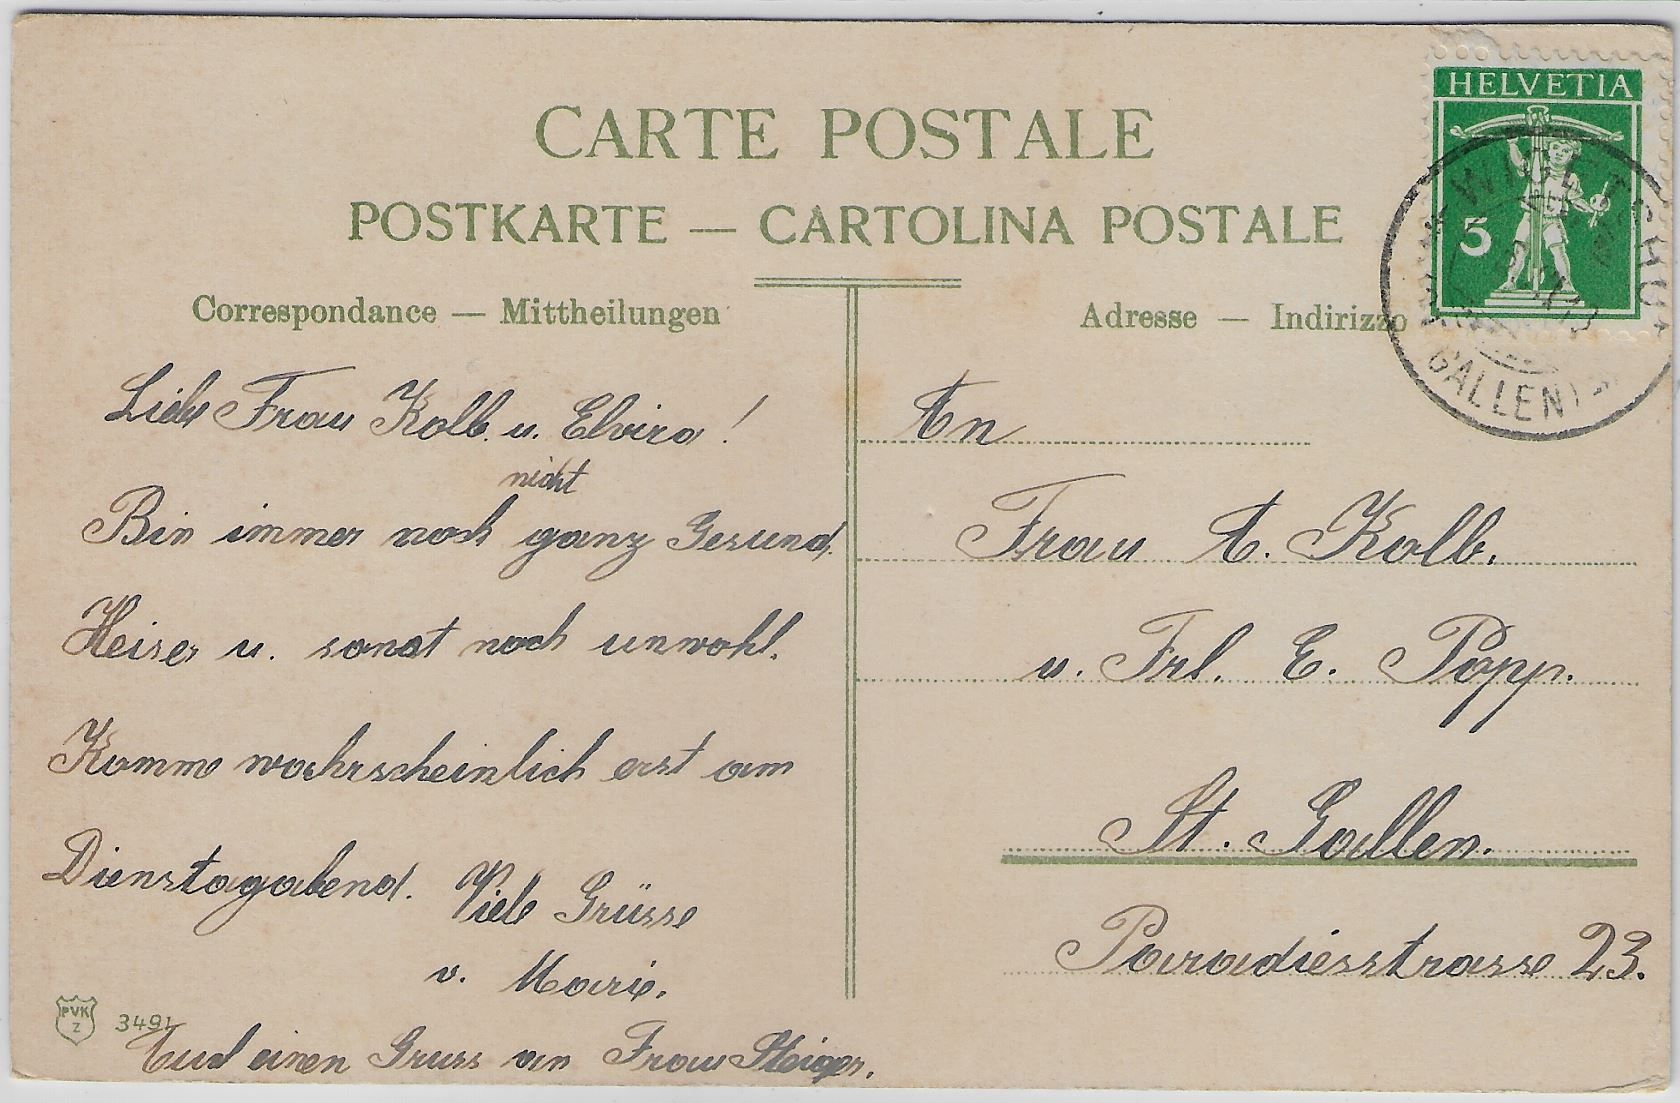 CARTE POSTALE
POSTKARTE — CARTOLINA POSTALE
Correspondance — Mittheilungen
Adresse — Indirizzo
HELVETIA
5
GALLEN)
Liebe Frau Kolb. u. Elvira!
nicht
Bin immer noch ganz Gesund.
Heiser u. sonst noch unwohl.
Komme wahrscheinlich erst am
Dienstagabend. Viele Grüsse
v. Marie.
einen Gruss an Frau Steiger.
PVK
Z
3491
An
Frau A. Kolb.
u. Frl. E. Popp.
St. Gallen.
Paradiesstrasse 23.